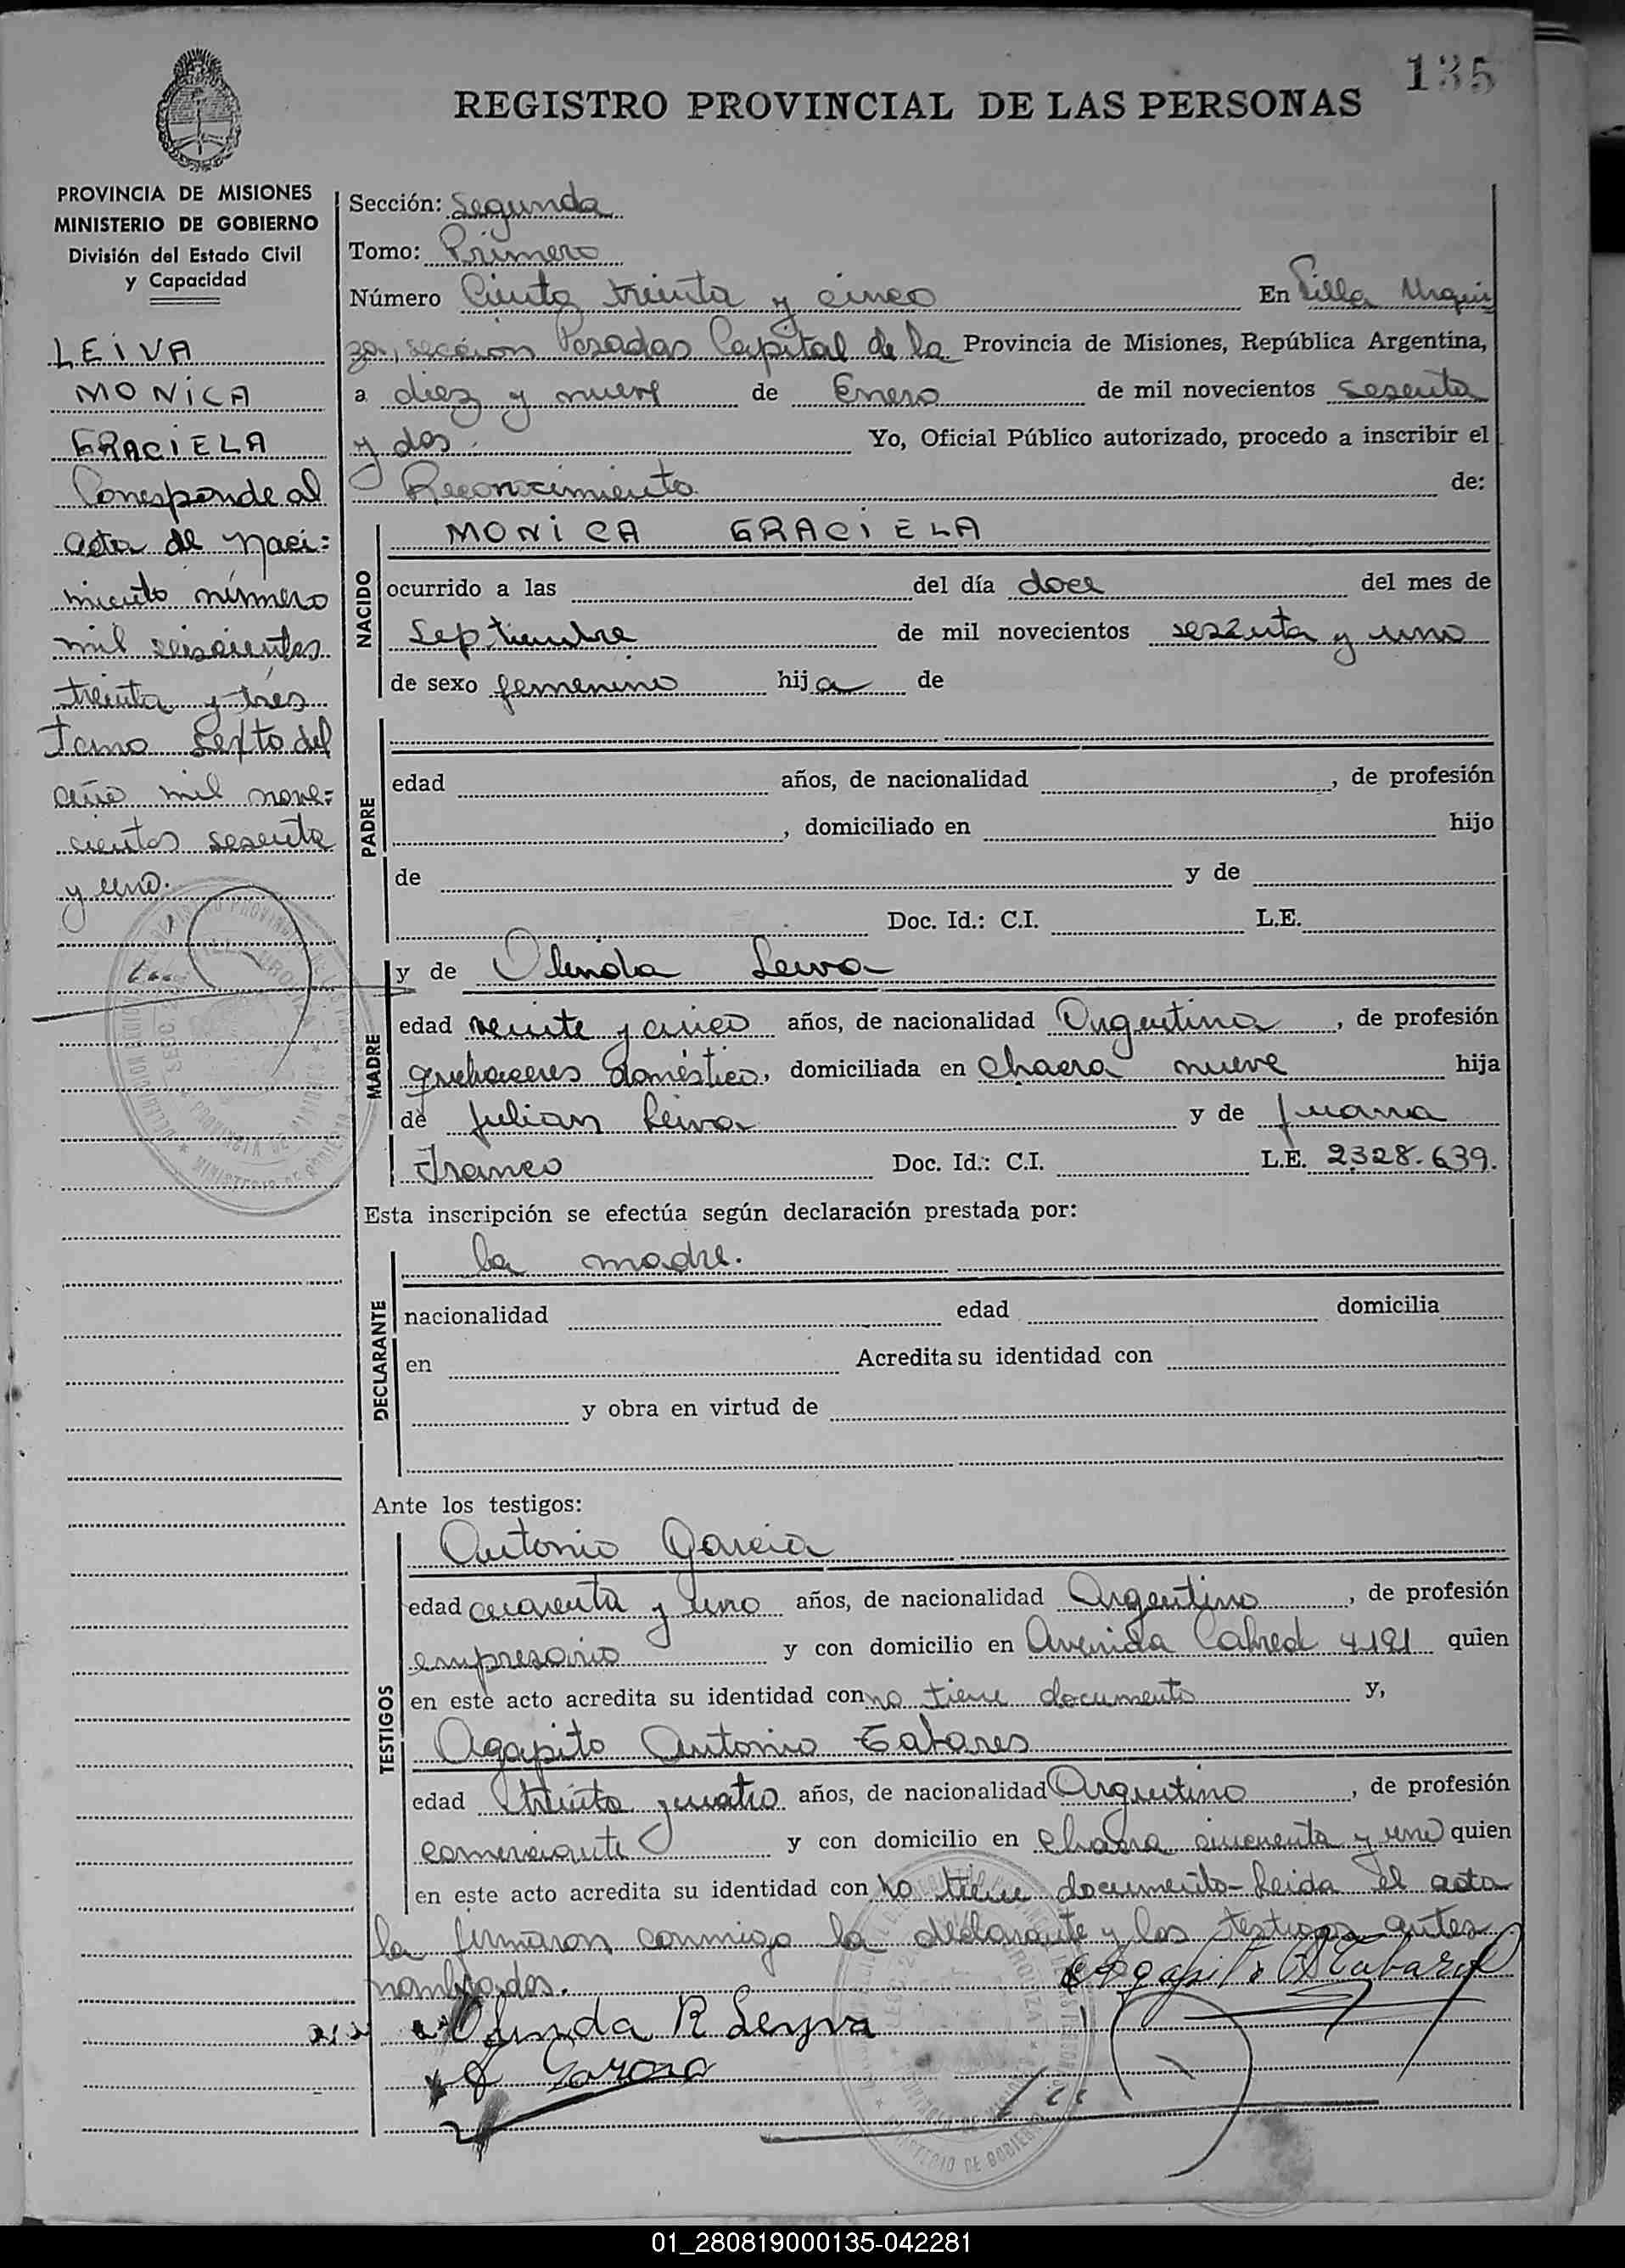 135
REGISTRO PROVINCIAL DE LAS PERSONAS
PROVINCIA DE MISIONES
MINISTERIO DE GOBIERNO
División del Estado Civil
y Capacidad
LEIVA
MONICA
GRACIELA
Corresponde al
acta de naci=
miento número
mil seiscientos
treinta y tres
Tomo Sexto del
año mil nove=
cientos sesenta
y uno.
Sección: Segunda
Tomo: Primero
Número Ciento treinta y cinco En Villa Urqui
za, sección Posadas Capital de la Provincia de Misiones, República Argentina,
a diez y nueve de Enero de mil novecientos sesenta
y dos. Yo, Oficial Público autorizado, procedo a inscribir el
Reconocimiento de:
NACIDO
MONICA GRACIELA
ocurrido a las del día doce del mes de
Septiembre de mil novecientos sesenta y uno
de sexo femenino hija de
PADRE
edad años, de nacionalidad , de profesión
, domiciliado en hijo
de y de
Doc. Id.: C.I. L.E.
MADRE
y de Olinda Leiva
edad veinte y cinco años, de nacionalidad Argentina, de profesión
quehaceres doméstico, domiciliada en chacra nueve hija
de Julian Leiva y de Juana
Franco Doc. Id.: C.I. L.E. 2328.639.
Esta inscripción se efectúa según declaración prestada por:
DECLARANTE
la madre.
nacionalidad edad domicilia
en Acredita su identidad con
y obra en virtud de
Ante los testigos:
TESTIGOS
Antonio Garcia
edad cuarenta y uno años, de nacionalidad Argentino, de profesión
empresario y con domicilio en Avenida Cabred 4191 quien
en este acto acredita su identidad con no tiene documento y,
Agapito Antonio Tabares
edad treinta y cuatro años, de nacionalidad Argentino, de profesión
comerciante y con domicilio en chacra cincuenta y uno quien
en este acto acredita su identidad con no tiene documento- Leida el acta
la firmaron conmigo la declarante y los testigos antes
nombrados.
Agapito A Tabares
Olinda R Leyva
01_280819000135-042281